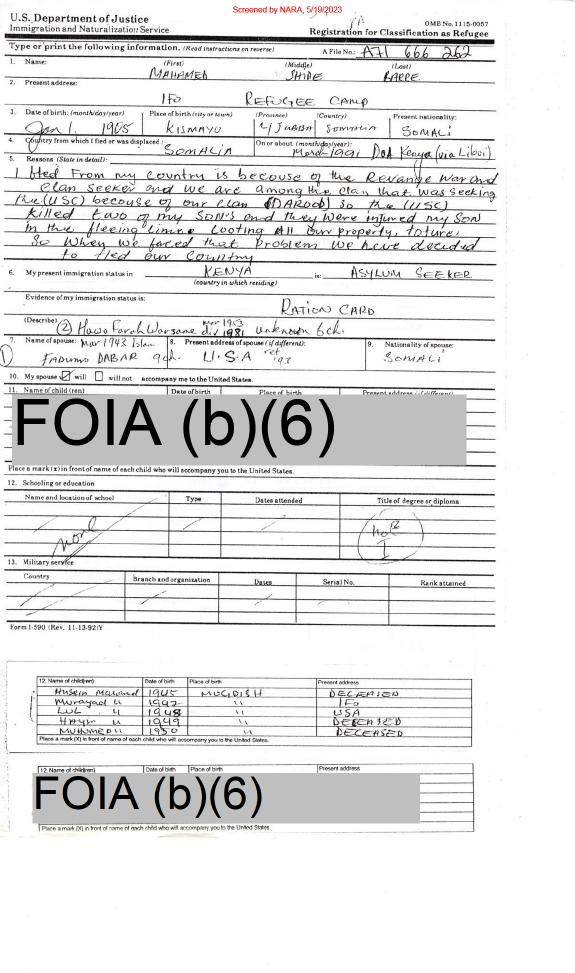 Screened by NARA, 5/19/2023
U.S. Department of Justice
Immigration and Naturalization Service
OMB No. 1115-0057
Registration for Classification as Refugee
Type or print the following information. (Read instructions on reverse)
A File No.: A71 666 262
1. Name: (First) (Middle) (Last)
MAHAMED SHIDE BARRE
2. Present address:
IFO REFUGEE CAMP
3. Date of birth: (month/day/year) Place of birth (city or town) (Province) (Country) Present nationality:
Jan 1. 1905 KISMAYO L/JUBBA Somalia SOMALi
4. Country from which I fled or was displaced: On or about (month/day/year):
SOMALIA March-1991 DOA Kenya (via Liboi)
5. Reasons (State in detail):
I fled From my country is becouse of the Revange war and
Clan Seeker and we are among the clan that was seeking
the (USC) becouse of our clan (DAROD) so the (USC)
killed two of my SON'S and they were injured my SON
in the fleeing Looting All our property, toture,
So when we faced that problem we have decided
to fled our Country
6. My present immigration status in KENYA is: ASYLUM SEEKER
(country in which residing)
Evidence of my immigration status is:
RATION CARD
(Describe) (2) Hawo Farah Warsame mar 1953 div 1981 unknown 6ch.
7. Name of spouse: mar 1943 8. Present address of spouse (if different): 9. Nationality of spouse:
(1) FADUMO DABAR 9ch. U.S.A ref '93 SOMALi
10. My spouse will will not accompany me to the United States.
11. Name of child (ren) Date of birth Place of birth Present address (if different)
FOIA (b)(6)
Place a mark (x) in front of name of each child who will accompany you to the United States.
12. Schooling or education
Name and location of school Type Dates attended Title of degree or diploma
none
13. Military service
Country Branch and organization Dates Serial No. Rank attained
Form I-590 (Rev. 11-13-92)Y
12. Name of child(ren) Date of birth Place of birth Present address
Husein Mahamed 1945 MUGDISH DECEASED
Murayad " 1947 " IFO
LUL " 1948 " USA
" 1949 " DECEASED
MUHUMED " 1950 " DECEASED
Place a mark (X) in front of name of each child who will accompany you to the United States.
12. Name of child(ren) Date of birth Place of birth Present address
FOIA (b)(6)
Place a mark (X) in front of name of each child who will accompany you to the United States.